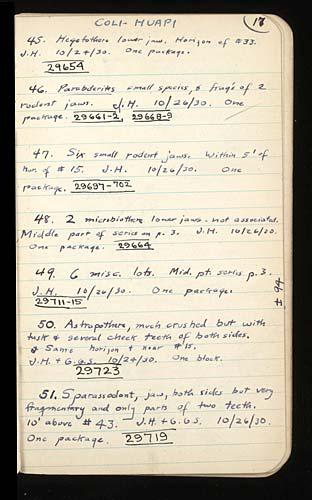 COLI-HUAPI
17
45. Hegetothere lower jaw. Horizon of #33.
J.H. 10/24/30. One package.
29654
46. Parabderites small species, & frag's of 2
rodent jaws. J.H. 10/26/30. One
package. 29661-2, 29668-9
47. Six small rodent jaws. Within 5' of
hor. of # 15. J.H. 10/26/30. One
package. 29697-702
48. 2 microbiothere lower jaws - not associated.
Middle part of series on p. 3. J.H. 10/26/30.
One package. 29664
49. 6 misc. lots. Mid. pt. series p. 3.
J.H. 10/26/30. One package.
29711-15
± 94
50. Astrapothere, much crushed but with
tusk & several cheek teeth of both sides.
& Same horizon & near # 15.
J.H. + G.G.S. 10/24/30. One block.
29723
51. Sparassodont, jaw, both sides but very
fragmentary and only parts of two teeth.
10' above # 43. J.H. + G.G.S. 10/26/30.
One package. 29719